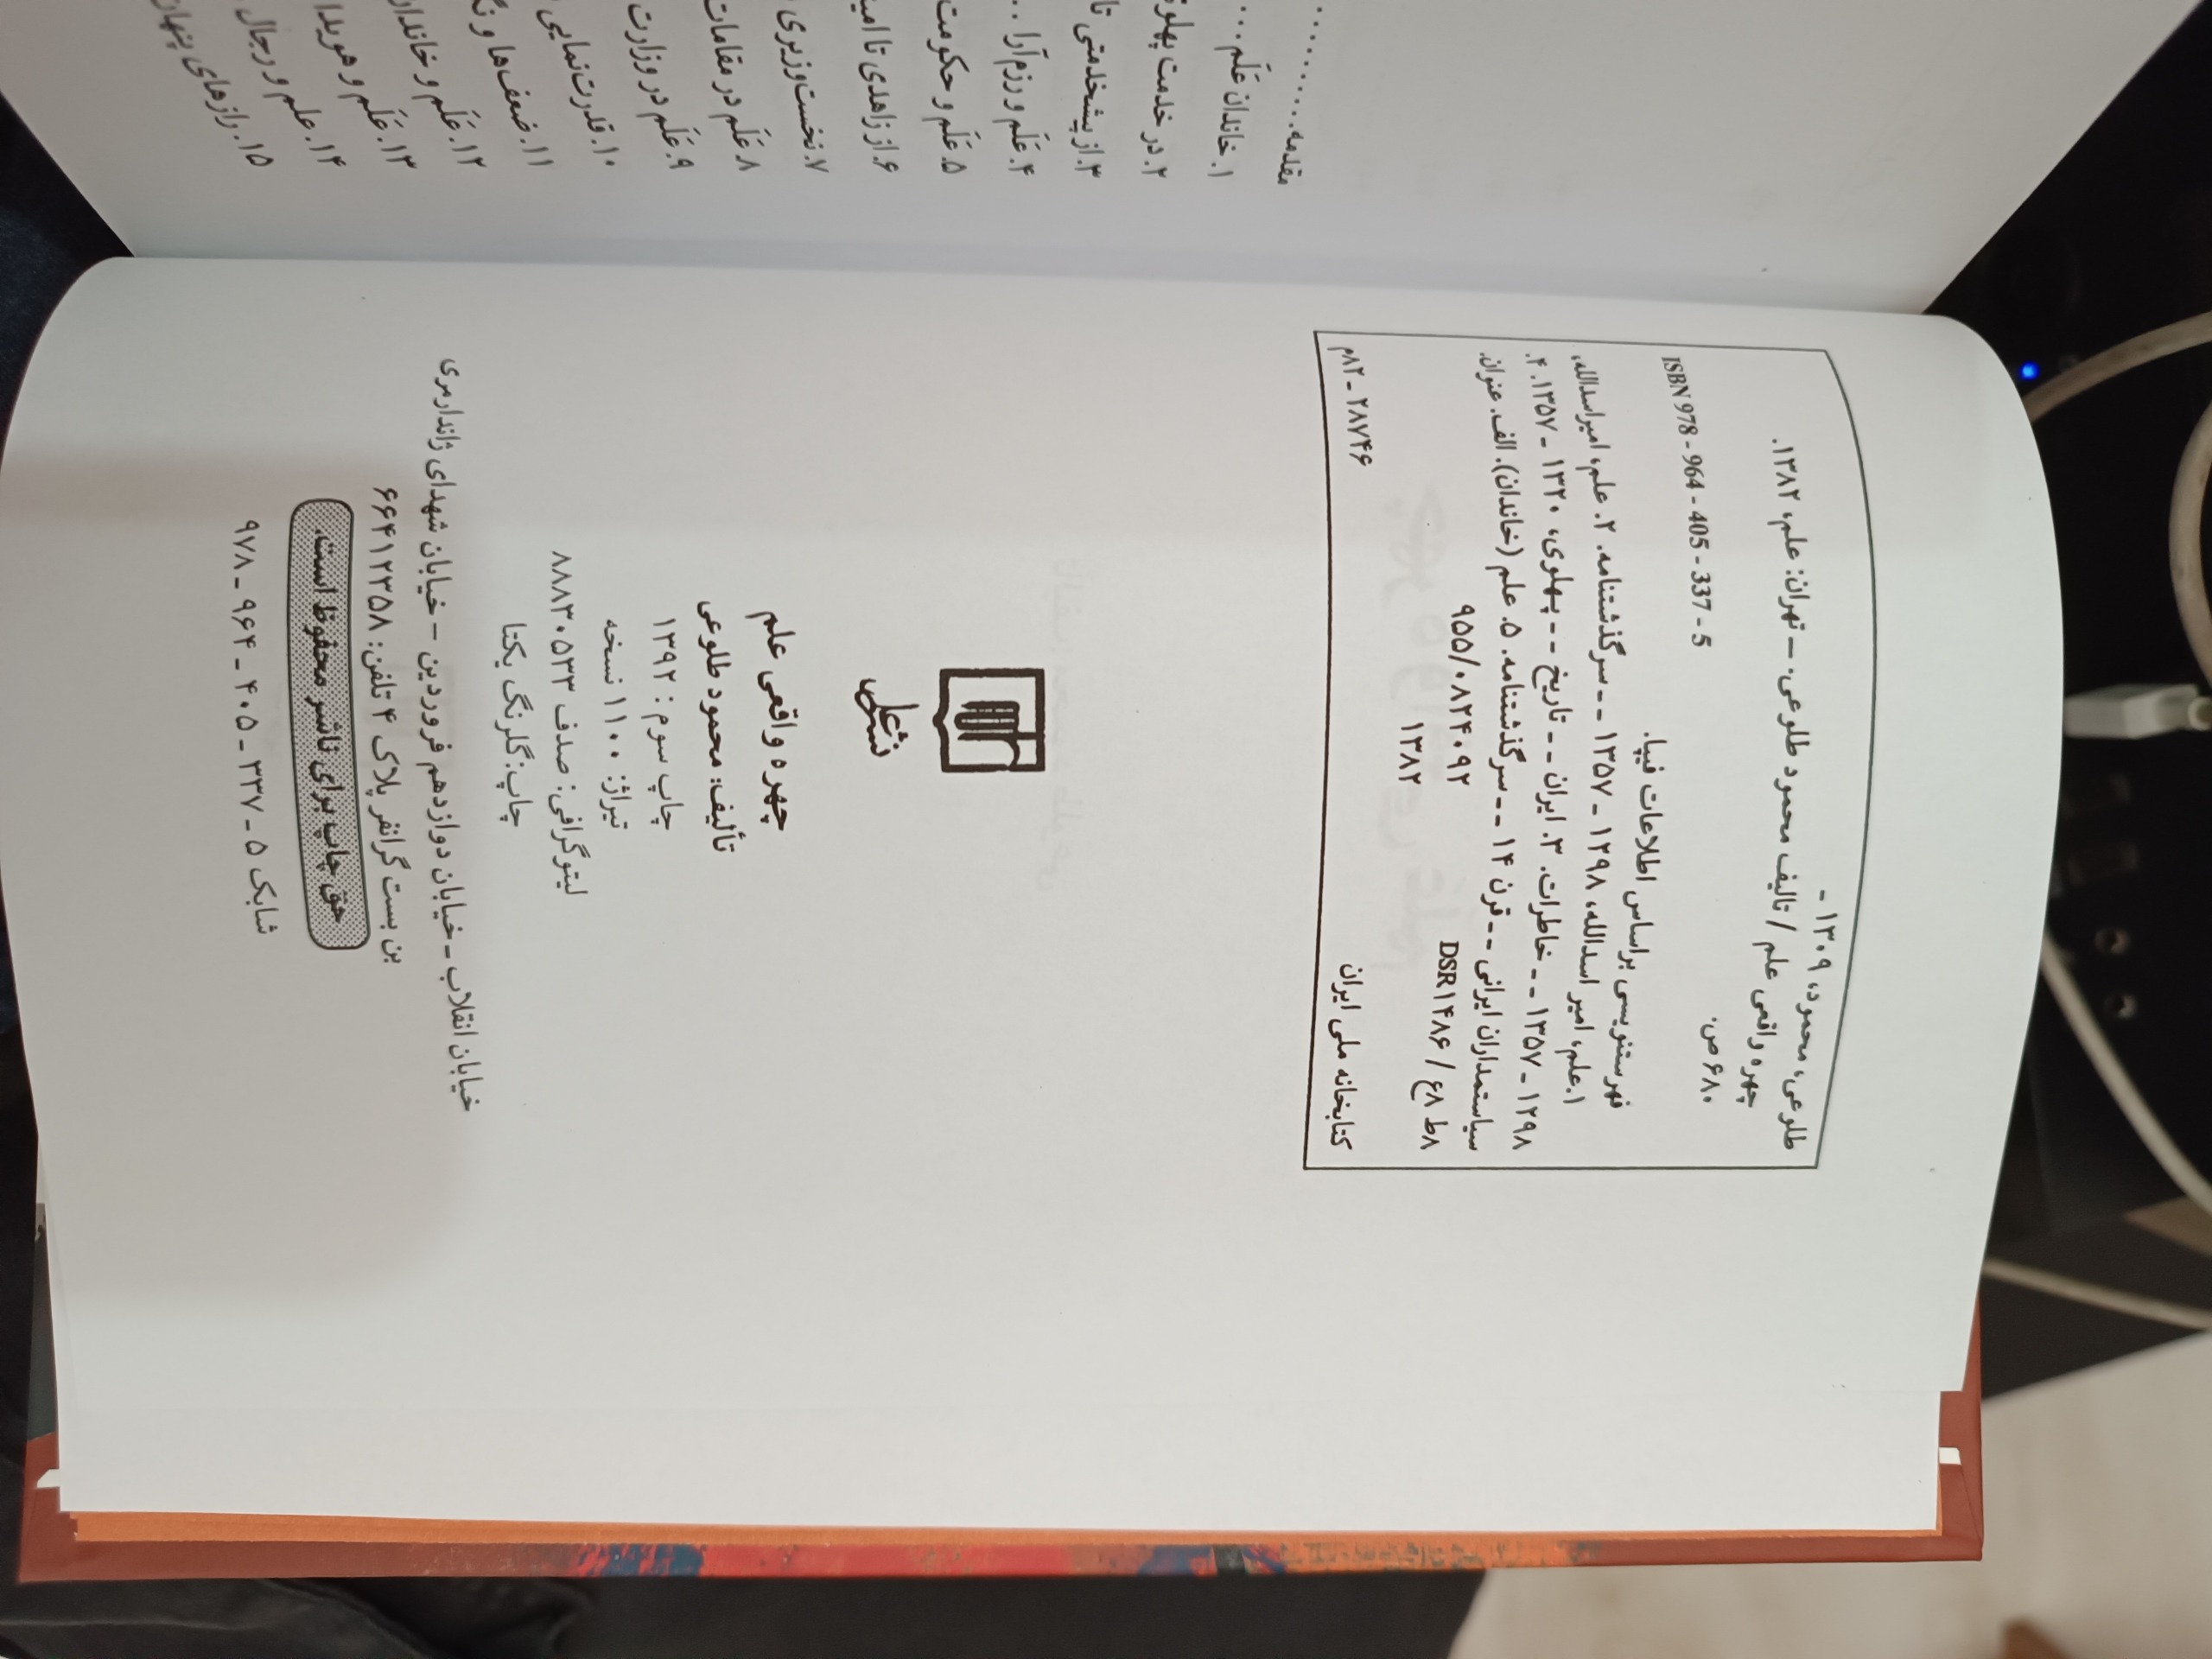 طلوعی، محمود، ۱۳۰۹ -
چهره واقعی علم / تالیف محمود طلوعی. – تهران: علم، ۱۳۸۲.
۶۸۰ ص.
ISBN 978 - 964 - 405 - 337 - 5
فهرستنویسی براساس اطلاعات فیپا.
۱. علم، امیر اسدالله، ۱۲۹۸ - ۱۳۵۷ -- سرگذشتنامه. ۲. علم، امیراسدالله،
۱۲۹۸ - ۱۳۵۷ -- خاطرات. ۳. ایران -- تاریخ -- پهلوی، ۱۳۲۰ - ۱۳۵۷. ۴.
سیاستمداران ایرانی -- قرن ۱۴ -- سرگذشتنامه. ۵. علم (خاندان). الف. عنوان.
۹۵۵/۰۸۲۴۰۹۲
DSR۱۴۸۶ / ع۸ط۸
۱۳۸۲
کتابخانه ملی ایران
۲۸۷۴۶ - ۸۲م
نشر علم
چهره واقعی علم
تألیف: محمود طلوعی
چاپ سوم : ۱۳۹۲
تیراژ: ۱۱۰۰ نسخه
لیتوگرافی: صدف ۸۸۸۳۰۵۳۳
چاپ: گلرنگ یکتا
خیابان انقلاب - خیابان دوازدهم فروردین – خیابان شهدای ژاندارمری
بن بست گرانفر پلاک ۴ تلفن: ۶۶۴۱۲۳۵۸
حق چاپ برای ناشر محفوظ است.
شابک ۵ - ۳۳۷ - ۴۰۵ - ۹۶۴ - ۹۷۸
مقدمه..........
۱. خاندان عَلَم...
۲. در خدمت
۳. از پیشخدمتی تا
۴. عَلَم و رزم‌آرا ..
۵. عَلَم و حکومت
۶. از زاهدی تا
۷. نخست‌وزیری
۸. عَلَم در مقامات
۹. عَلَم در وزارت
۱۰. قدرت‌نمایی
۱۱. ضعف‌ها و
۱۲. عَلَم و
۱۳. عَلَم و هویدا
۱۴. علم و رجال
۱۵. رازهای